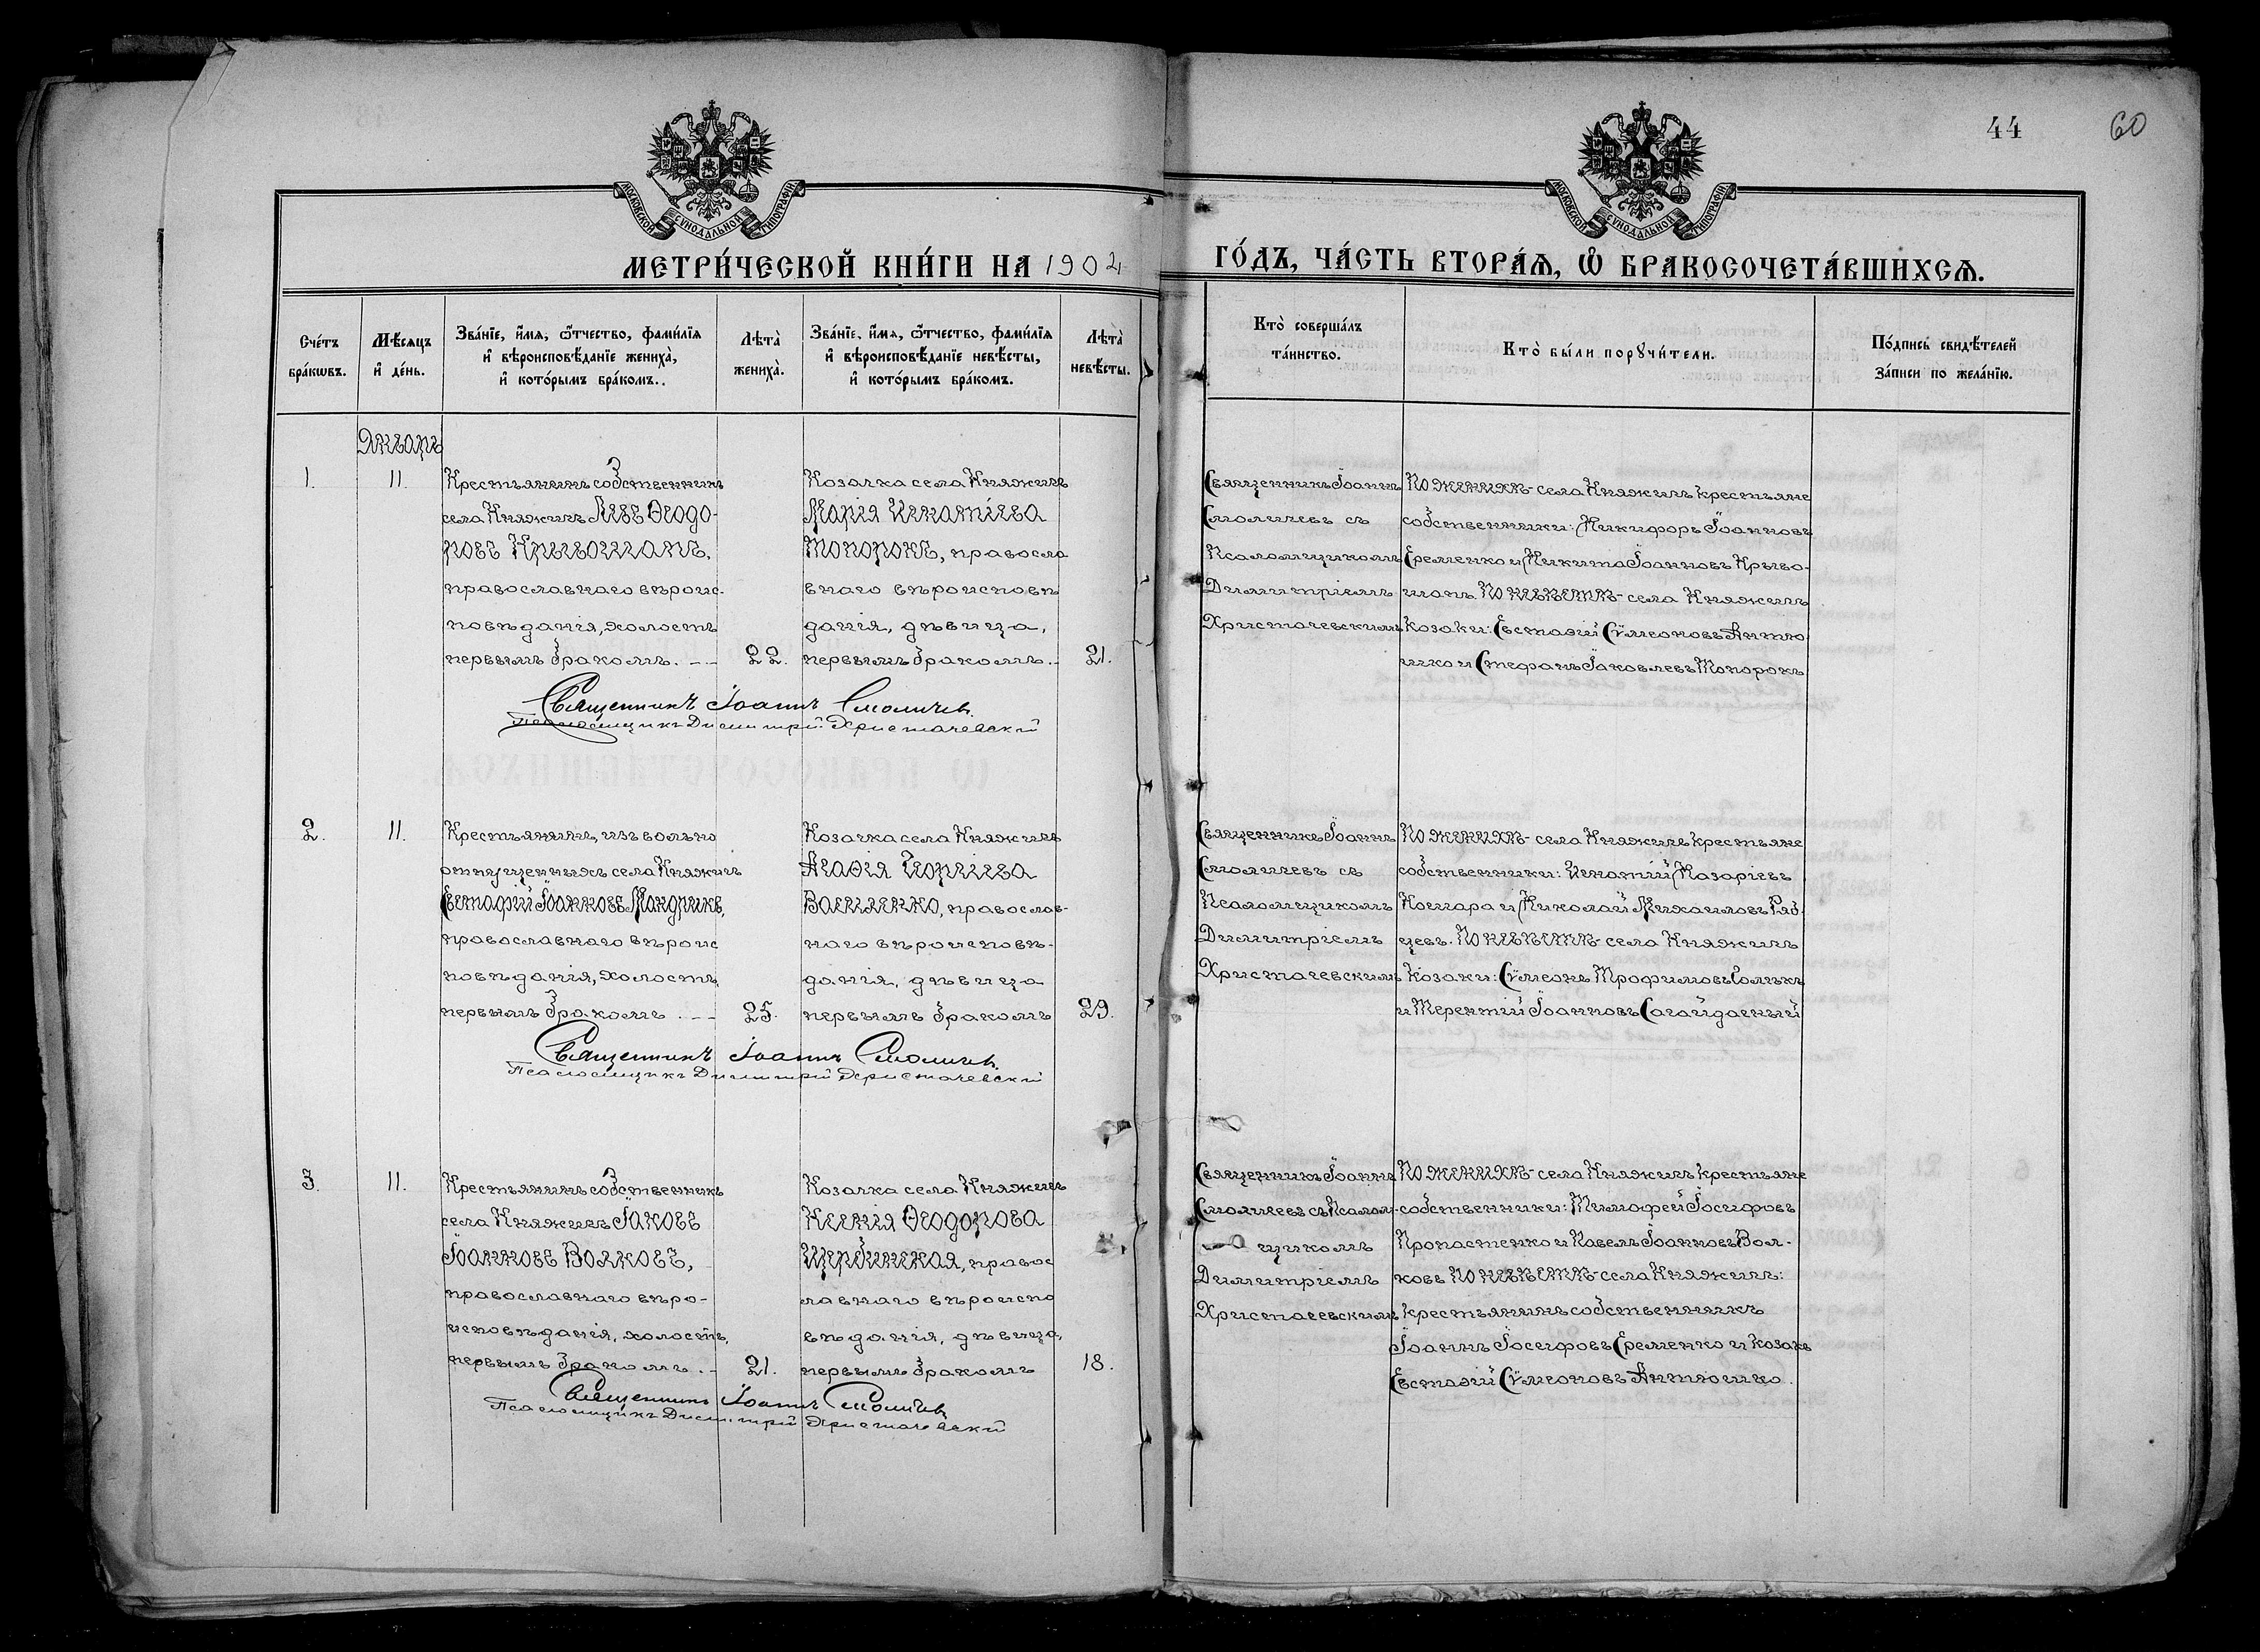 44
60
МОСКОВСКОЙ СУНОДАЛЬНОЙ ТИПОГРАФІИ
МОСКОВСКОЙ СУНОДАЛЬНОЙ ТИПОГРАФІИ
МЕТРИ́ЧЕСКОЙ КНИ́ГИ НА 1902
ГО́ДЪ, ЧА́СТЬ ВТОРА́Ѧ, Ѡ БРАКОСОЧЕТА́ВШИХСѦ.
Сче́тъ бра́кѡвъ.
Мѣ́сяцъ и де́нь.
Зва́нїе, и́мя, ѻ́тчество, фами́лїя и вѣроисповѣ́данїе жениха̀, и кото́рымъ бра́комъ.
Лѣта̀ жениха̀.
Зва́нїе, и́мя, ѻ́тчество, фами́лїя и вѣроисповѣ́данїе невѣ́сты, и кото́рымъ бра́комъ.
Лѣта̀ невѣ́сты.
Кто̀ соверша́лъ та́инство.
Кто̀ бы́ли порꙋчи́тели.
По́дпись свидѣ́телей за́писи по жела́нїю.
Январь
1.
11.
Крестьянинъ собственникъ
села Княжичъ Левъ Ѳеодо-
ровъ Кривошапъ,
православнаго вѣроис-
повѣданія, холостъ
первымъ бракомъ.
22.
Козачка села Княжичъ
Марія Игнатіева
Топорокъ, правосла
внаго вѣроисповѣ
данія, дѣвица,
первымъ бракомъ.
21.
Священникъ Іоаннъ
Смоличевъ съ
Псаломщикомъ
Димитріемъ
Христачевскимъ
По женихѣ- села Княжичъ крестьяне
собственники: Никифоръ Іоанновъ
Еременко и Никита Іоанновъ Криво-
шапъ. По невѣстѣ- села Княжичъ
козаки: Евстаѳій Сѵмеоновъ Антю
шко и Стефанъ Іаковлевъ Топорокъ
Священникъ Іоаннъ Смоличевъ.
Псаломщикъ Димитрій Христачевскій
2.
11.
Крестьянинъ, изъ вольно
отпущенныхъ села Княжичъ
Евстафій Іоанновъ Мандрикъ,
православнаго вѣроис
повѣданія, холостъ,
первымъ бракомъ.
25.
Козачка села Княжичъ
Агаѳія Георгіева
Василенко, православ-
наго вѣроисповѣ-
данія, дѣвица
первымъ бракомъ
29.
Священникъ Іоаннъ
Смоличевъ съ
Псаломщикомъ
Димитріемъ
Христачевскимъ
По женихѣ- села Княжичъ крестьяне
собственники: Игнатій Назаріевъ
Кошара и Николай Михаиловъ Ряб-
цевъ. По невѣстѣ- села Княжичъ
Козаки: Сѵмеонъ Трофимовъ
и Терентій Іоанновъ Сагайдачный
Священникъ Іоаннъ Смоличевъ.
Псаломщикъ Димитрій Христачевскій
3.
11.
Крестьянинъ собственникъ
села Княжичъ Іаковъ
Іоанновъ Волковъ,
православнаго вѣро-
исповѣданія, холостъ,
первымъ бракомъ.
21.
Козачка села Княжичъ
Ксенія Ѳеодорова
Щербинская, правос
лавнаго вѣроиспо
вѣданія, дѣвица,
первымъ бракомъ
18.
Священникъ Іоаннъ
Смоличевъ съ Псалом-
щикомъ
Димитріемъ
Христачевскимъ
По женихѣ- села Княжичъ крестьяне
собственники: Тимофей Іосифовъ
Пропастенко и Павелъ Іоанновъ Вол-
ковъ По невѣстѣ- села Княжичъ:
крестьянинъ собственникъ
Іоаннъ Іосифовъ Еременко и козакъ
Евстаѳій Сѵмеоновъ Антюшко.
Священникъ Іоаннъ Смоличевъ
Псаломщикъ Димитрій Христачевскій